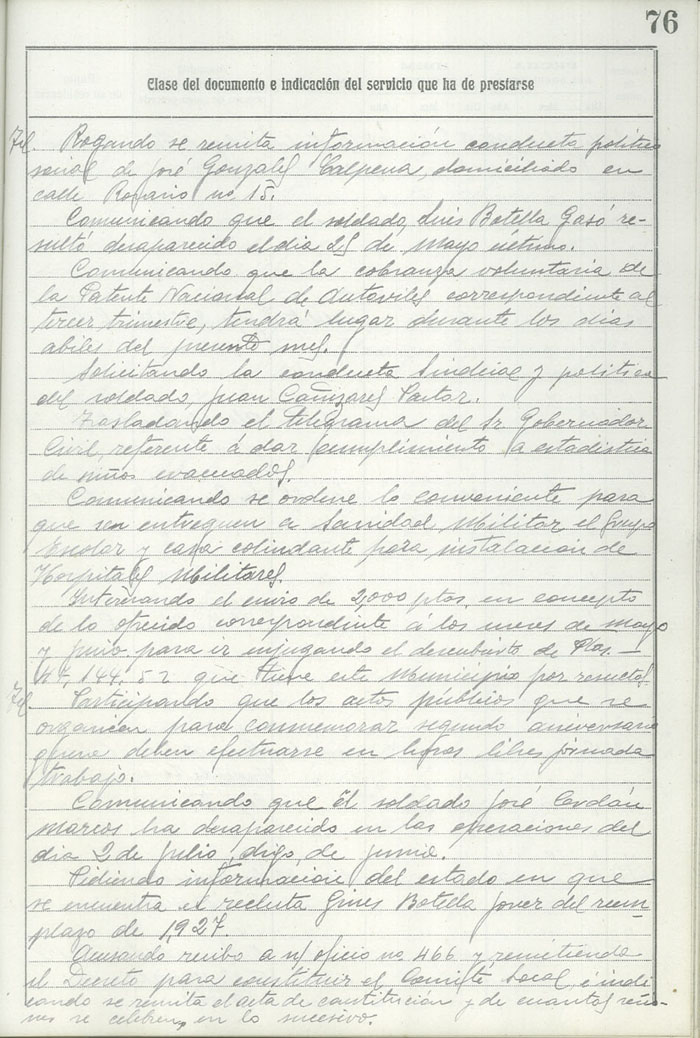 76
Clase del documento e indicación del servicio que ha de prestarse
Tel. Rogando se remita información conducta politico
social de José Gonzalez Calpena, domiciliado en
calle Rosario no. 15.
Comunicando que el soldado, Luis Botella Gasó re-
sultó desaparecido el dia 25 de Mayo último.
Comunicando que la cobranza voluntaria de
la Patente Nacional de Autoviles correspondiente al
tercer trimestre, tendrá lugar durante los dias
abiles del presente mes.
Solicitando la conducta Sindical y politica
del soldado, Juan Cañizares Pastor.
Trasladando el telegrama del Sr. Gobernador
Civil referente á dar cumplimiento a estadistica
de niños evacuados.
Comunicando se ordene lo conveniente para
que sea entreguen a Sanidad Militar el Grupo
Escolar y casa colindante para instalación de
Hospitales Militares.
Interesando el envio de 2,000 ptas. en concepto
de lo ofrecido correspondiente á los meses de mayo
y junio para ir enjugando el descubierto de Ptas. —
44,144,52 que tiene este Municipio por
Tel. Participando que los actos públicos que se
organicen para conmemorar segundo aniversario
guerra deben efectuarse en horas libres jornada
trabajo.
Comunicando que el soldado José Cerdán
Marcos ha desaparecido en las operaciones del
dia 2 de julio, digo, de junio.
Pidiendo información del estado en que
se encuentra el recluta Gines Botella Jover del reem-
plazo de 1,927.
Acusando recibo a n/ oficio no. 466 y remitiendo
el Decreto para constituir el Comité Local, é indi
cando se remita el acta de constitución y de cuantas reúnio-
nes se celebren, en lo sucesivo.